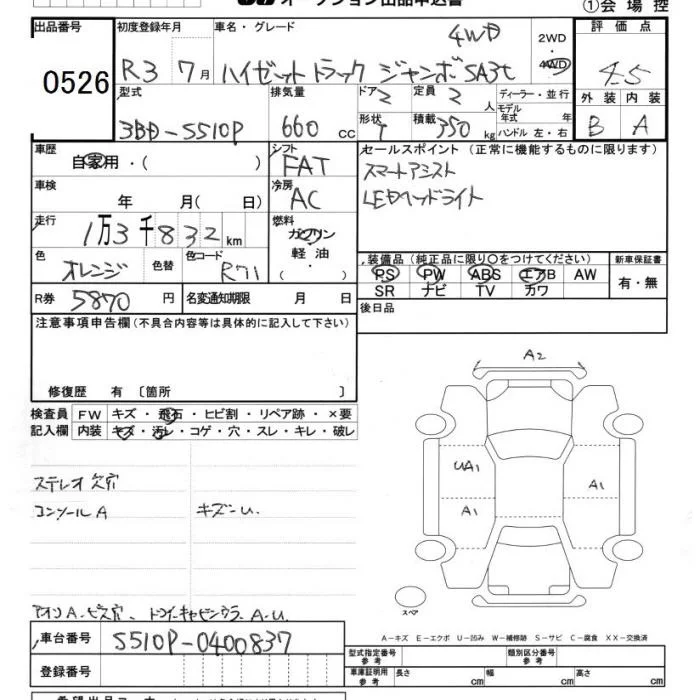 オークション出品申込書
①会場控
出品番号 初度登録年月 車名・グレード 評価点
0526
R3 7月 ハイゼットトラック ジャンボSA3t 4WD
2WD・4WD
4.5
型式 排気量 ドア 定員 ディーラー・並行 外装 内装
3BD-S510P 660cc 2 2人 モデル年式 年 B A
形状 積載 ハンドル 左・右
T 350kg
車歴 シフト セールスポイント (正常に機能するものに限ります)
自家用・( ) FAT スマートアシスト
車検 冷房 LEDヘッドライト
年 月( 日) AC
走行 燃料
1万3千832km ガソリン
軽油
・
( )
色 色替 色コード
オレンジ R71
装備品 (純正品に限り○をつけてください) 新車保証書
PS PW ABS エアB AW 有・無
SR ナビ TV カワ
R券 5870円 名変通知期限 月 日
後日品
注意事項申告欄(不具合内容等は具体的に記入して下さい)
修復歴 有〔箇所 〕
検査員 FW キズ・飛石・ヒビ割・リペア跡・×要
記入欄 内装 キズ・汚レ・コゲ・穴・スレ・キレ・破レ
A2
UA1
A1
A1
スペア
ステレオ欠品
コンソールA キズ-U.
A.U.
A-キズ E-エクボ U-凹み W-補修跡 S-サビ C-腐食 XX-交換済
車台番号 S510P-0400837
登録番号
型式指定番号 参考 類別区分番号 参考
車庫証明用 参考 長さ cm 幅 cm 高さ cm
希望出品コーナー